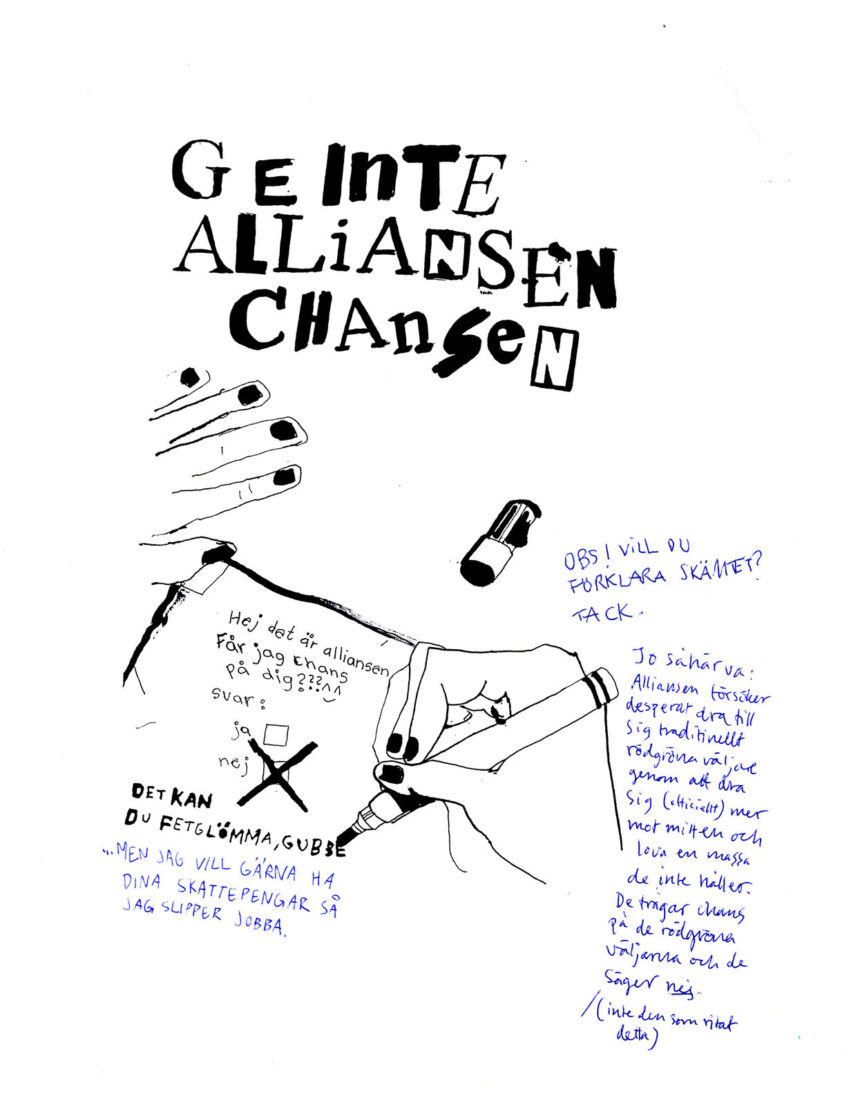 GE INTE
ALLiANSEN
CHAnSeN
Hej det är alliansen
Får jag chans
på dig???^^
svar:
ja
nej
DET KAN
DU FETGLÖMMA, GUBBE
...MEN JAG VILL GÄRNA HA
DINA SKATTEPENGAR SÅ
JAG SLIPPER JOBBA.
OBS! VILL DU
FÖRKLARA SKÄMTET?
TACK.
Jo såhär va:
Alliansen försöker
desperat dra till
sig traditinellt
rödgröna väljare
genom att dra
sig (officiellt) mer
mot mitten och
lova en massa
de inte håller.
De frågar chans
på de rödgröna
väljarna och de
säger nej.
/(inte den som ritat
detta)